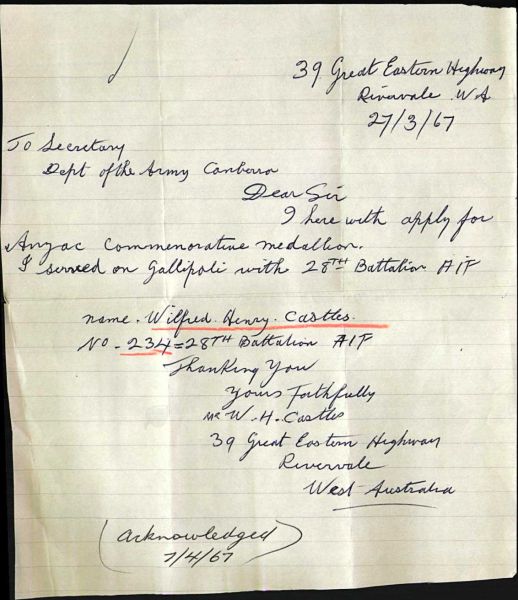 39 Great Eastern Highway
Rivervale W.A
27/3/67
To Secretary
Dept of the Army Canberra
Dear Sir
I here with apply for
Anzac Commemorative medallion.
I served on Gallipoli with 28TH Battalion AIF
name. Wilfred. Henry. Castles.
No - 234 = 28TH Battalion AIF
Thanking You
Yours Faithfully
Mr W. H. Castles
39 Great Eastern Highway
Rivervale
West Australia
(Acknowledged)
7/4/67